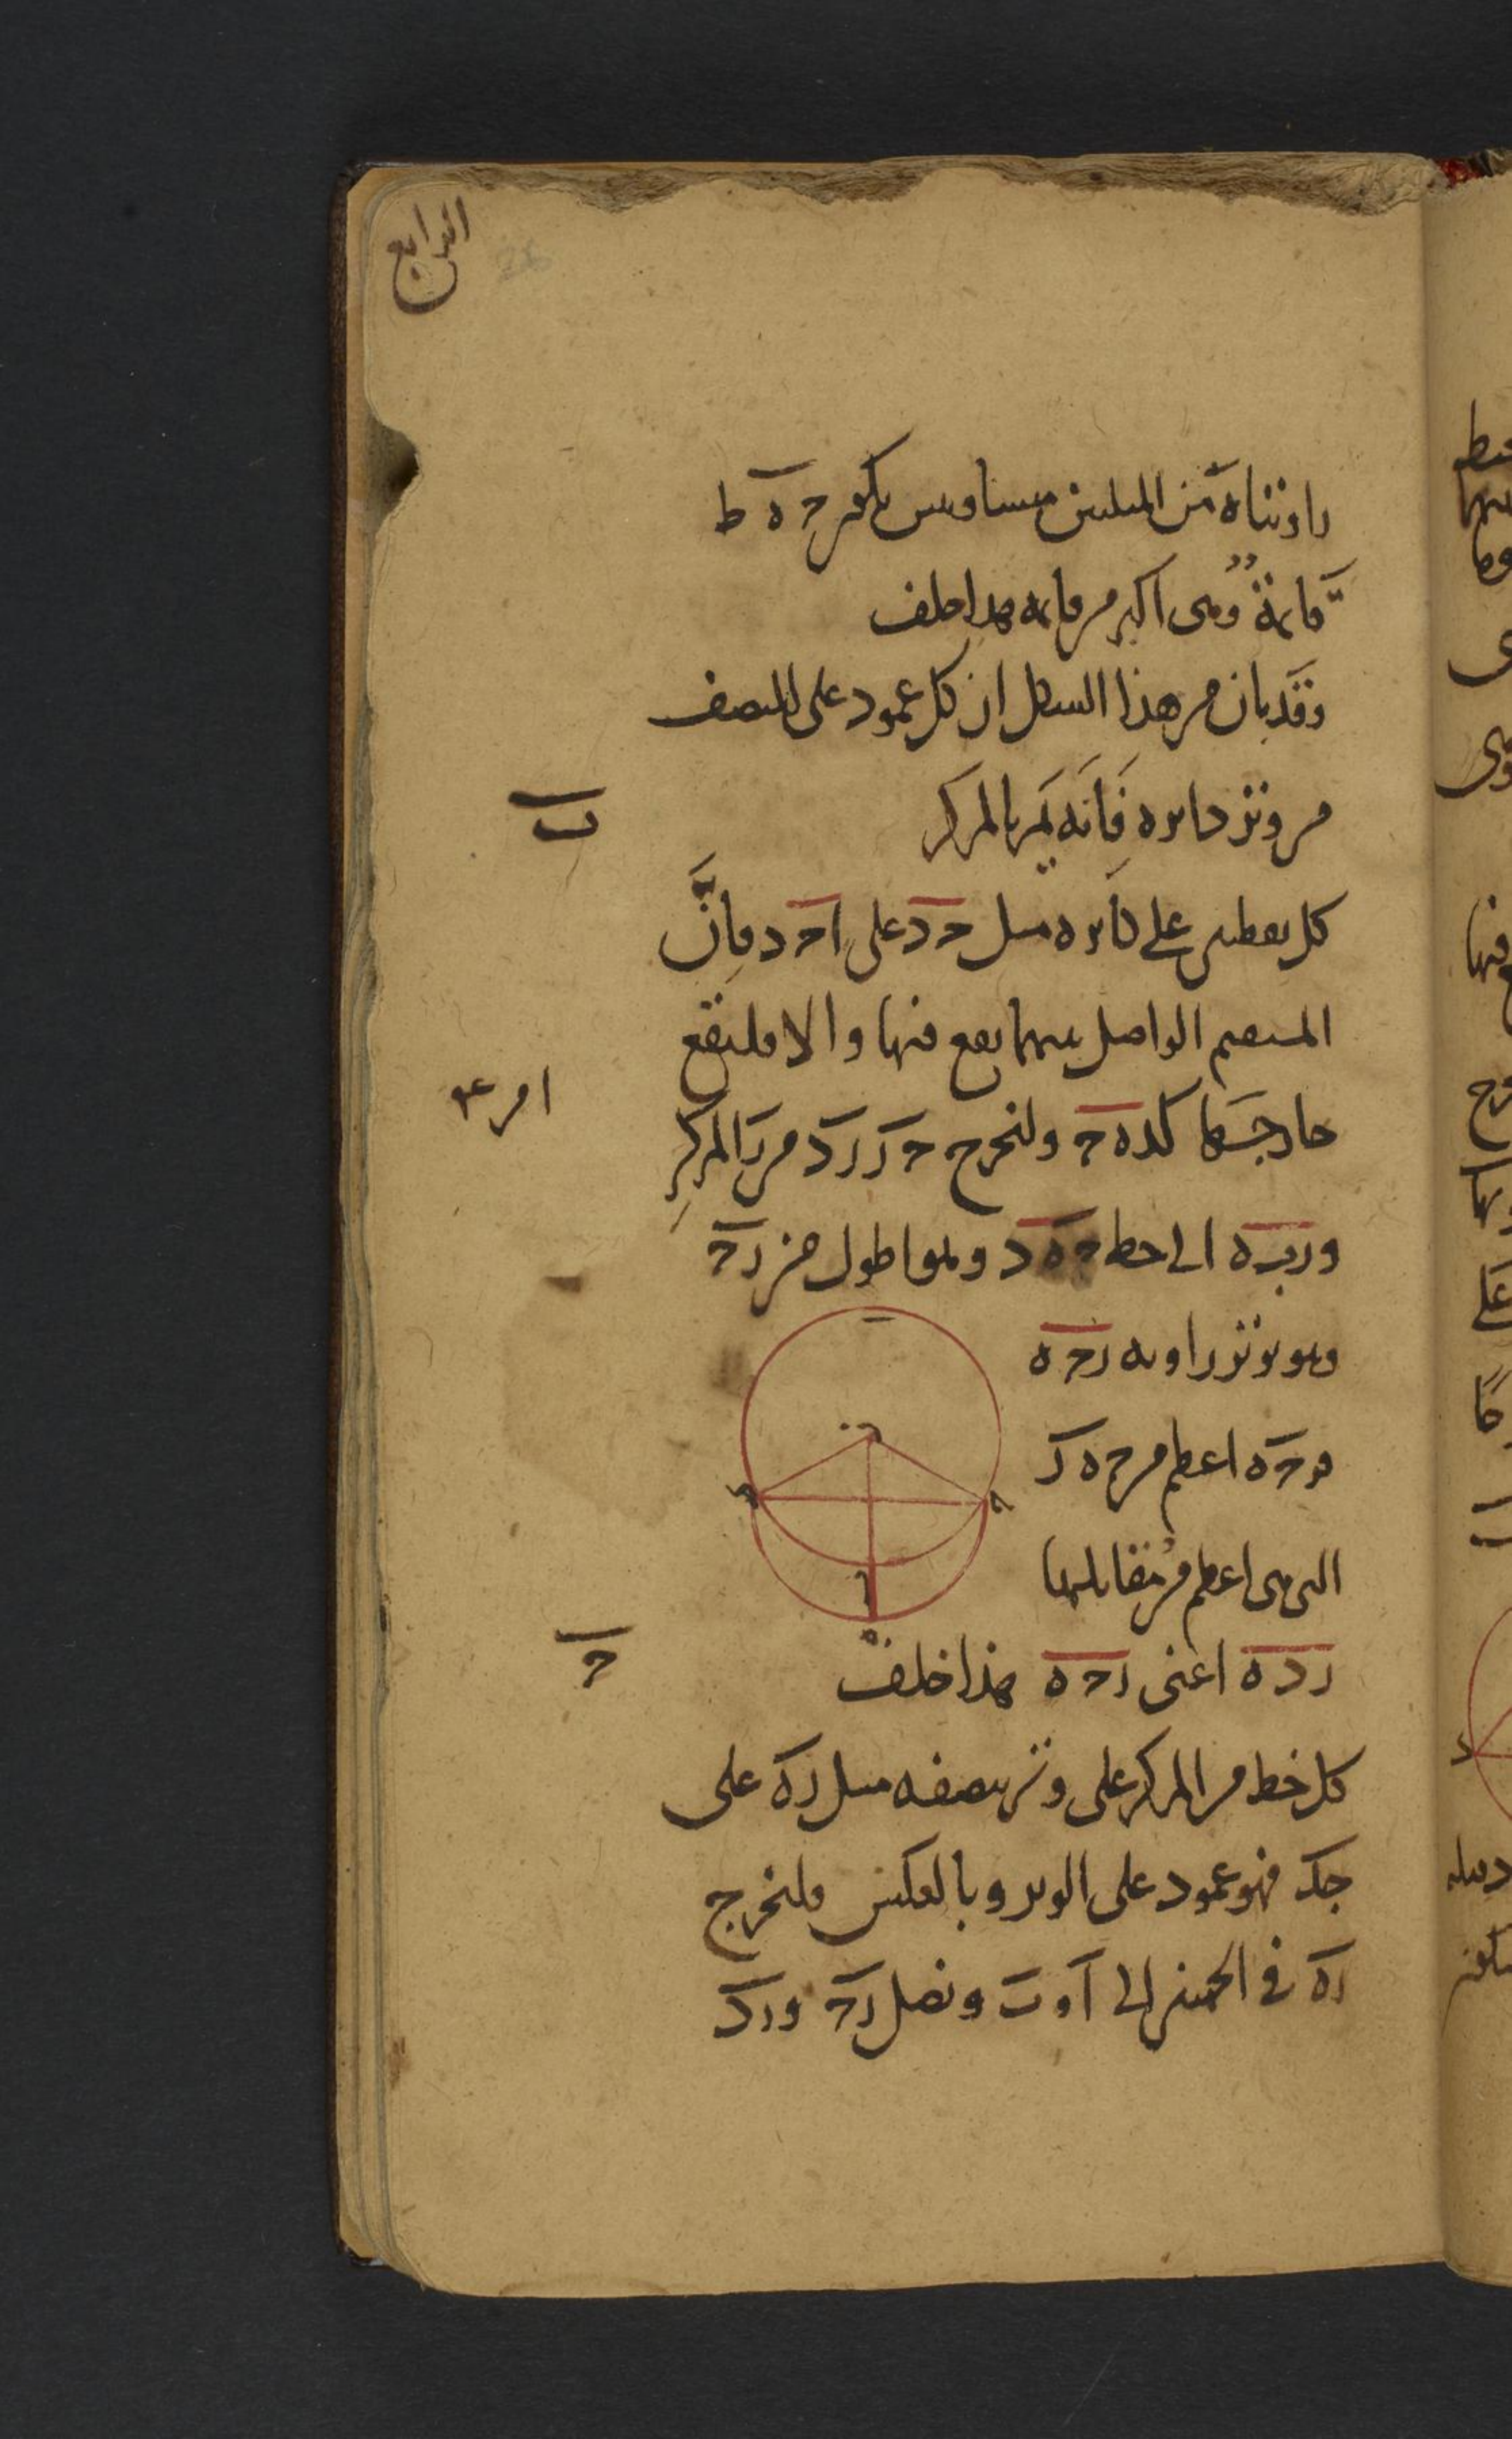 الرابع
26
زاويتا ه من المثلثين متساويتين يكون ح ه ط
قائمة وهى اكبر من قائمة هذا خلف
وقد بان من هذا الشكل ان كل عمود على المنتصف
من وتر دائرة فانه يمر بالمركز
ب
كل نقطتين على دائرة مثل ح د على ا ح د فان
المستقيم الواصل بينهما يقع فيها والا فليقع
خارجها كد ه ح ولنخرج ح ز ز د من ز المركز
و ز ب ه الى خط ح ه د وهو اطول من ز ح
وهو يوتر زاوية ز ح ه
فزح ه اعظم من ح ه ز
التى هى اعظم من مقابلتها
ز د ه اعنى ز ح ه هذا خلف
ح
كل خط من المركز على وتر ينصفه مثل ز ه على
جد فهو عمود على الوتر وبالعكس فلنخرج
ز ه فى الجهتين الى آ و ب ونصل ز ح و ز د